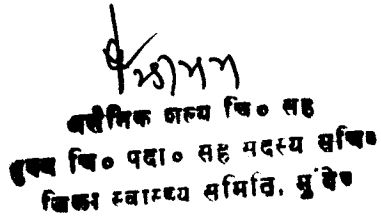 असैनिक शल्य चि० सह
मुख्य चि० पदा० सह सदस्य सचिव
जिला स्वास्थ्य समिति, मुंगेर